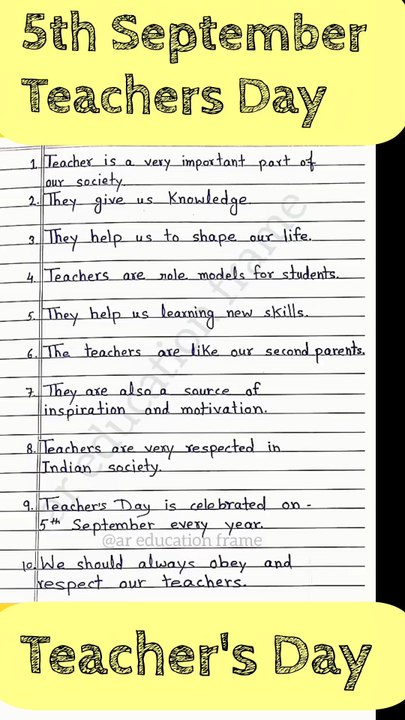 5th September
Teachers Day
1. Teacher is a very important part of
our society.
2. They give us Knowledge
3 They help us to shape our life.
4 Teachers are role models for students.
5. They help us learning new skills.
6. The teachers are like our second parents.
7. They are also a source of
inspiration and motivation.
8. Teachers are very respected in
Indian society.
9. Teacher's Day is celebrated on -
5th September every year.
@ar education frame
10. We should always obey and
respect our teachers.
ar education frame
Teacher's Day